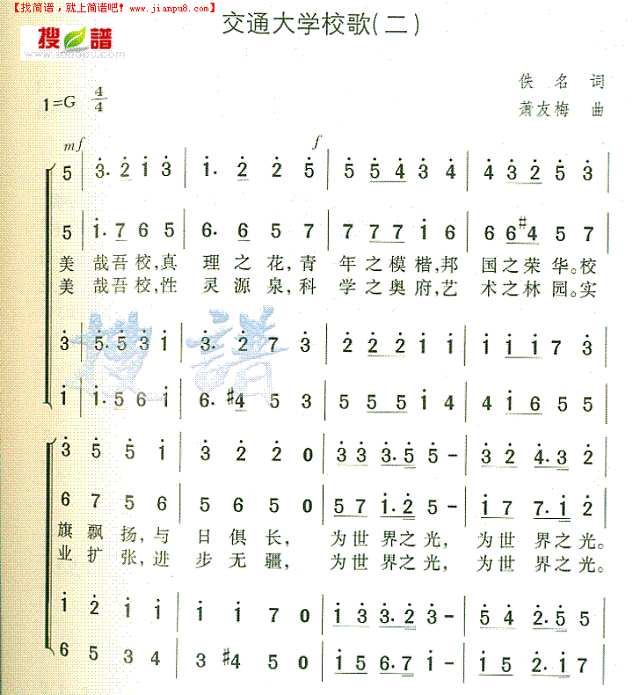 【找简谱，就上简谱吧! www.jianpu8.com】
搜谱
交通大学校歌(二)
佚名 词
1=G 4/4
萧友梅 曲
mf f
5 | 3. 2 1 3 | 1. 2 2 5 | 5 5 4 3 4 | 4 3 2 5 3 |
5 | 1. 7 6 5 | 6. 6 5 7 | 7 7 7 1 6 | 6 6 #4 5 7 |
美 哉吾校,真 理之花,青 年之模楷,邦 国之荣华。校
美 哉吾校,性 灵源泉,科 学之奥府,艺 术之林园。实
搜谱
3 | 5. 5 3 1 | 3. 2 7 3 | 2 2 2 1 1 | 1 1 1 7 3 |
1 | 1. 5 6 1 | 6. #4 5 3 | 5 5 5 1 4 | 4 1 6 5 5 |
3 5 5 1 | 3 2 2 0 | 3 3 3. 5 5 - | 3 2 4. 3 2 |
6 7 5 6 | 5 6 5 0 | 5 7 1. 2 5 - | 1 7 7. 1 2 |
旗飘扬,与 日俱长, 为世界之光, 为世界之光。
业扩张,进 步无疆, 为世界之光, 为世界之光。
1 2 1 1 | 1 1 7 0 | 1 3 3. 2 3 - | 5 4 2. 5 5 |
6 5 3 4 | 3 #4 5 0 | 1 5 6. 7 1 - | 1 5 2. 1 7 |